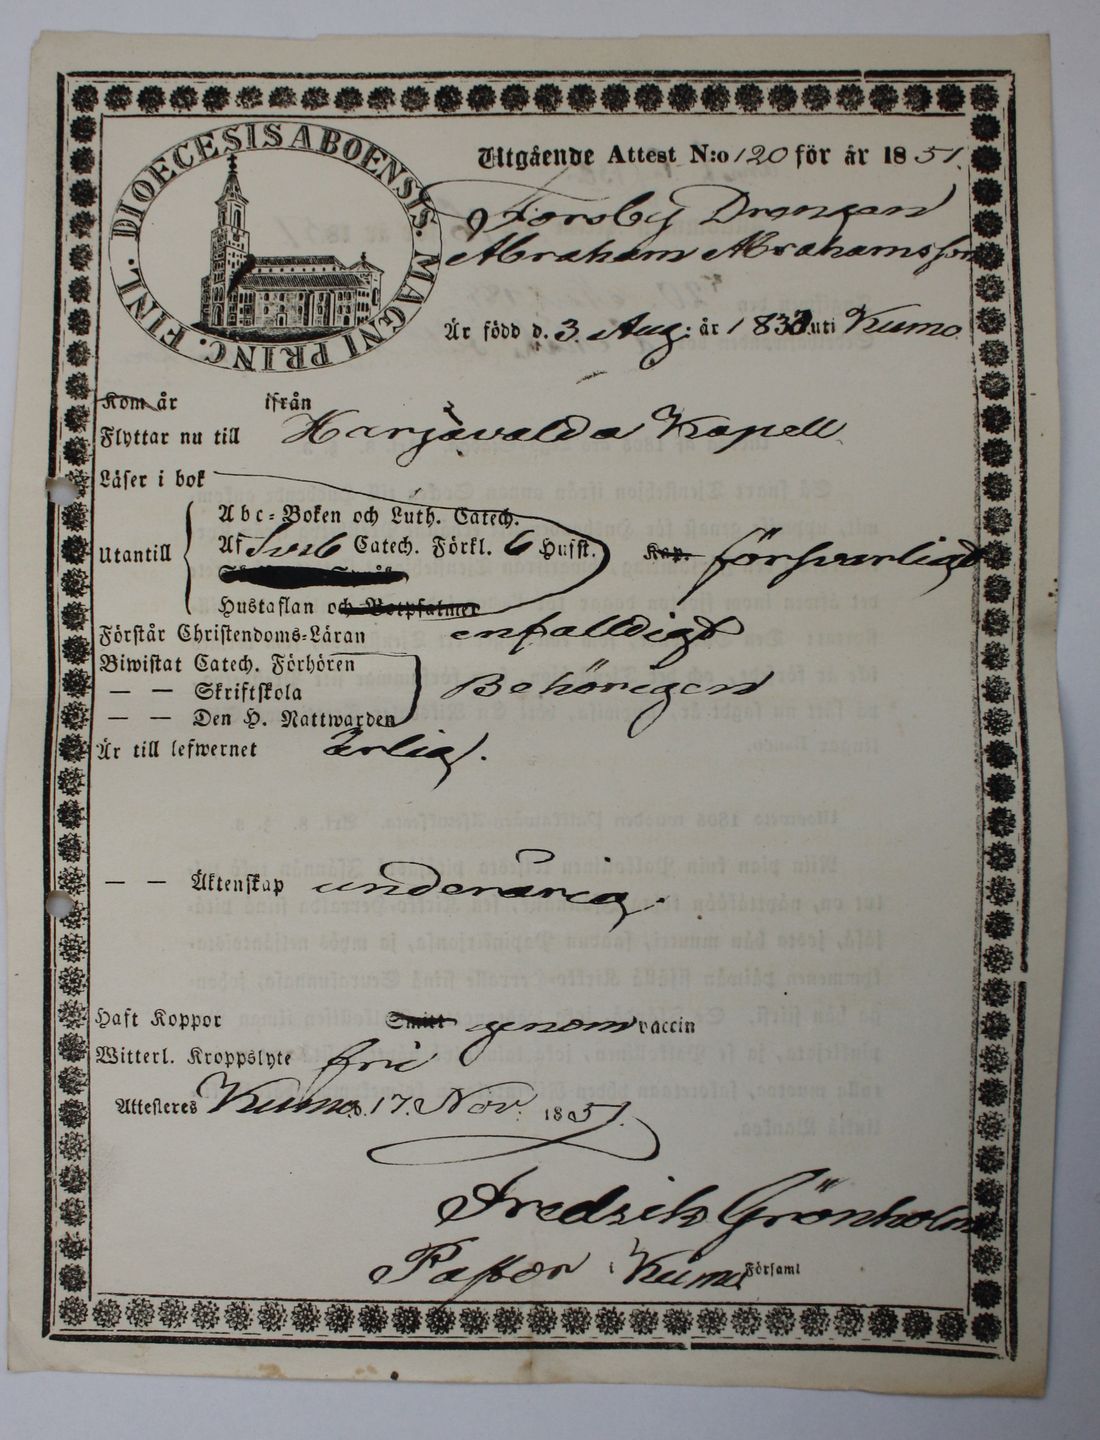 DIOECESIS ABOENSIS. MAGNI PRINC. FINL.
Utgående Attest N:o 120 för år 1851.
Forsby Drengen
Abraham Abrahamsson
Är född d. 3 Aug: år 1833 uti Kumo
Kom år ifrån
Flyttar nu till Harjavalda Kapell
Läser i bok
Abc-Boken och Luth. Catech.
Utantill Af Sveb Catech. Förkl. 6 Husst. Kap. försvarligt
Hustaflan och Botpsalmer
Förstår Christendoms-Läran enfalldigt
Biwistat Catech. Förhören
— — Skriftskola Behörigen
— — Den H. Nattwarden
Är till lefwernet ärlig.
— — Äktenskap underårig.
Haft Koppor Smitt genom vaccin
Witterl. Kroppslyte fri
Attesteres Kumo d. 17. Nov. 1851.
Fredrik Grönholm
Pastor i Kumo Församl